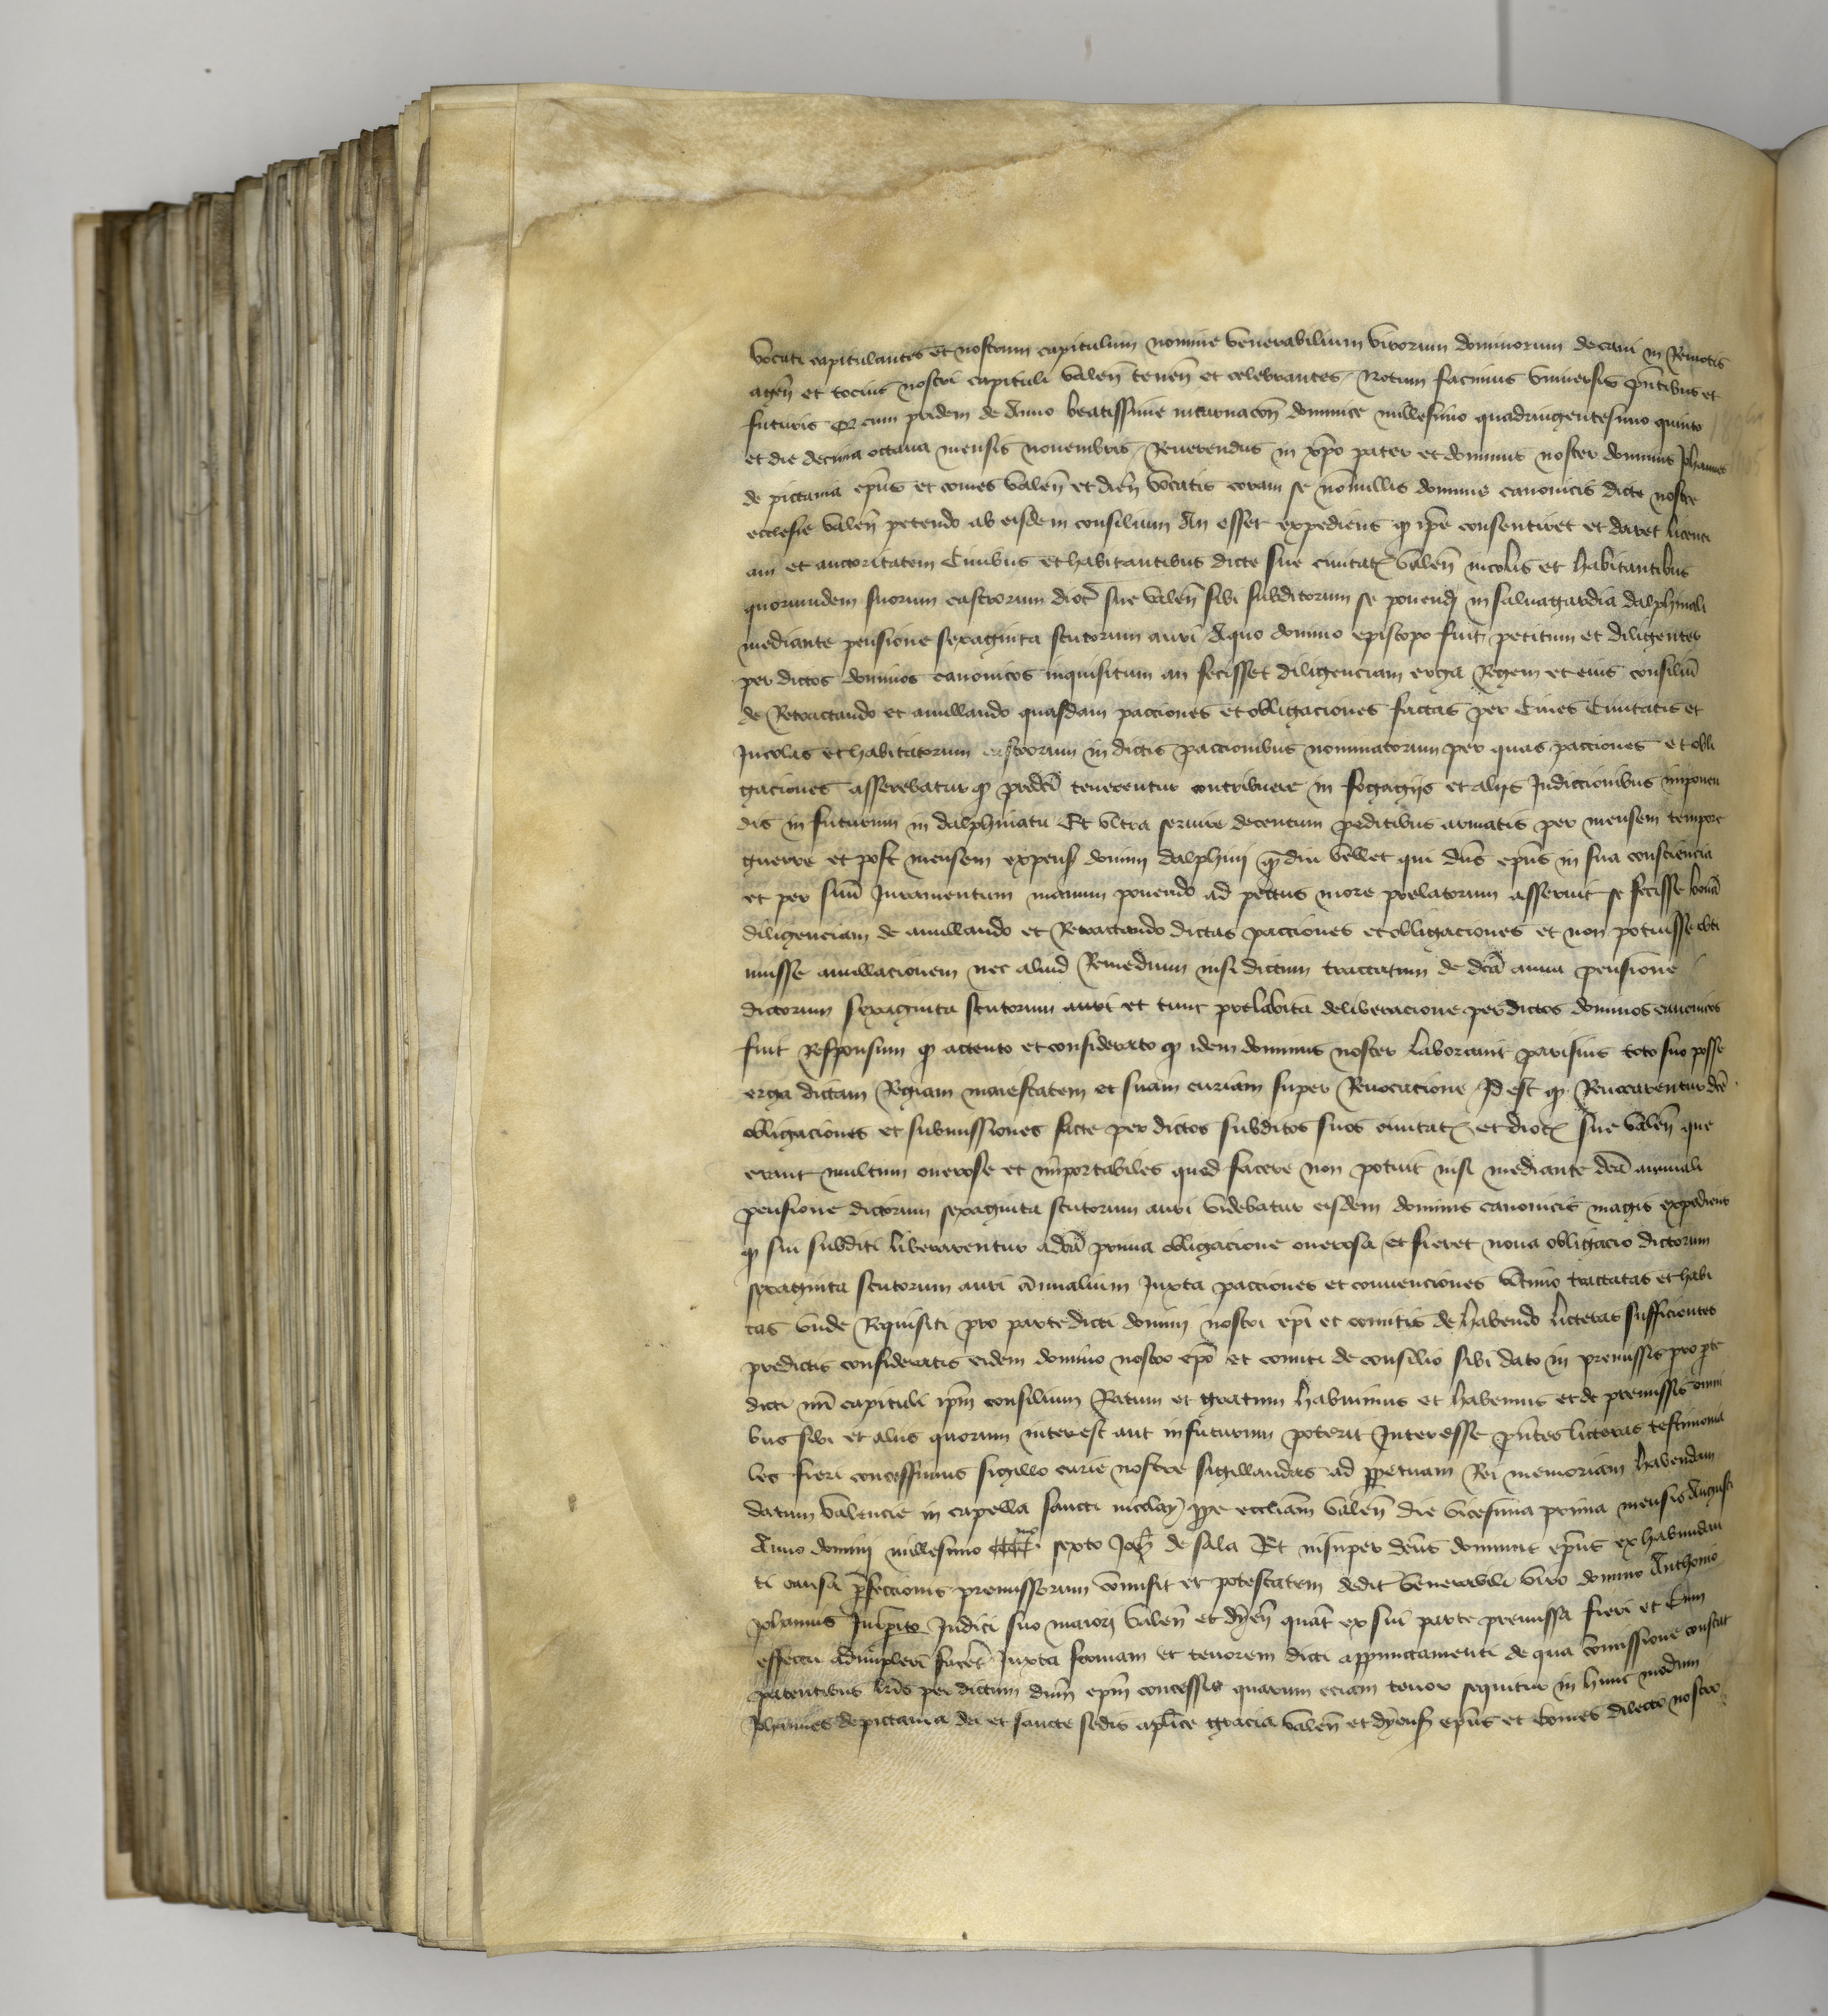 vocati capitulantes et nostrum capitulum nomine venerabilium virorum dominorum decani in Remotis
agen̄ et tocius nostri capituli valen̄ tenen̄ et celebrantes Notum facimus universis pn̄tibus et
futuris q cum pridem de Anno beatissime incarnacōn dominice millesimo quadringentesimo quinto
et die decima octava mensis novembris Reverendus in xp̄o pater et dominus noster dominus Johannes
de pictavia ep̄us et comes valen̄ et dien̄ vocatis coram se nonnullis dominis canonicis dicte nostre
ecclesie valen̄ petendo ab eisdem consilium An esset expediens q ip̄e consentiret et daret licenci
am et auctoritatem Civibus et habitantibus dicte sue civitat valen̄ incolis et habitantibus
quorumdem suorum castrorum dioc sue valen̄ sibi subditorum se ponend in salvagardia dalphinali
mediante pensione sexaginta scutorum auri A quo domino episcopo fuit petitum et diligenter
per dictos dominos canonicos inquisitum an fecisset diligenciam erga Regem et eius consiliū
de Retractando et anullando quasdam pacciones et obligaciones factas per Cives Civitatis et
Incolas et habitatorum castrorum in dictis paccionibus nominatorum per quas pacciones et obli
gaciones asserebatur q predc̄i tenerentur contribuere in fogagiis et aliis Indiccionibus imponen
dis in futurum in dalphinatu Et ultra servire de centum peditibus armatis per mensem tempore
guerre et post mensem expens domini dalphini q̄diu vellet qui dn̄s ep̄us in sua consciencia
et per suū Juramentum manum ponendo ad pectus more prelatorum asseruit se fecisse bonā
diligenciam de anullando et Retractando dictas pacciones et obligaciones et non potuisse obti
nuisse anullacionem nec aliud Remedium nisi dictum tractatum de dc̄a annua pensione
dictorum sexaginta scutorum auri et tunc prehabita deliberacione per dictos dominos canonicos
fuit Responsum q attento et considerato q idem dominus noster laboravit parisius toto suo posse
erga dictam Regiam maiestatem et suam curiam super Revocacione Id est q Revocarentur dc̄e
obligaciones et submissiones facte per dictos subditos suos civitat et dioc sue valen̄ que
erant multum onerose et importabiles quod facere non potuit nisi mediante dc̄a annuali
pensione dictorum sexaginta scutorum auri videbatur eisdem dominis canonicis magis expediens
q sui subditi liberarentur a dc̄a prima obligacione onerosa et fieret nova obligacio dictorum
sexaginta scutorum auri annualium Juxta pacciones et convenciones ultimo tractatas et habi
tas unde Requisiti pro parte dicti domini nostri ep̄i et comitis de habendo litteras sufficientes
predictis consideratis eidem domino nostro ep̄o et comiti de consilio sibi dato in premissis pro pte
dicti nr̄i capituli ip̄m consilium Ratum et gratum habuimus et habemus et de premissis omni
bus sibi et aliis quorum interest aut in futurum poterit Interesse pn̄tes litteras testimonia
les fieri concessimus sigillo curie nostre sigillandas ad perpetuam Rei memoriam habendam
datum valencie in capella sancti nicolay prope eccliam valen̄ die vicesima prima mensis Augusti
Anno domini millesimo cccc^mo sexto Joh de sala Et insuper dc̄us dominus ep̄us ex habundan
ti causa perfectionis premissorum commisit et potestatem dedit venerabili viro domino Anthonio
Johannis Jurisperito Judici suo maiori valen̄ et dyen̄ quat ex sui parte premissa fieri et Cum
effectu adimpleri facet Juxta formam et tenorem dicti appunctamenti de qua commissione constat
patentibus lr̄is per dictum dnm̄ ep̄m concessis quarum eciam tenor sequitur in hunc modum
Johannes de pictavia dei et sancte sedis aplice gracia valen̄ et dyens ep̄us et Comes dilecto nostro